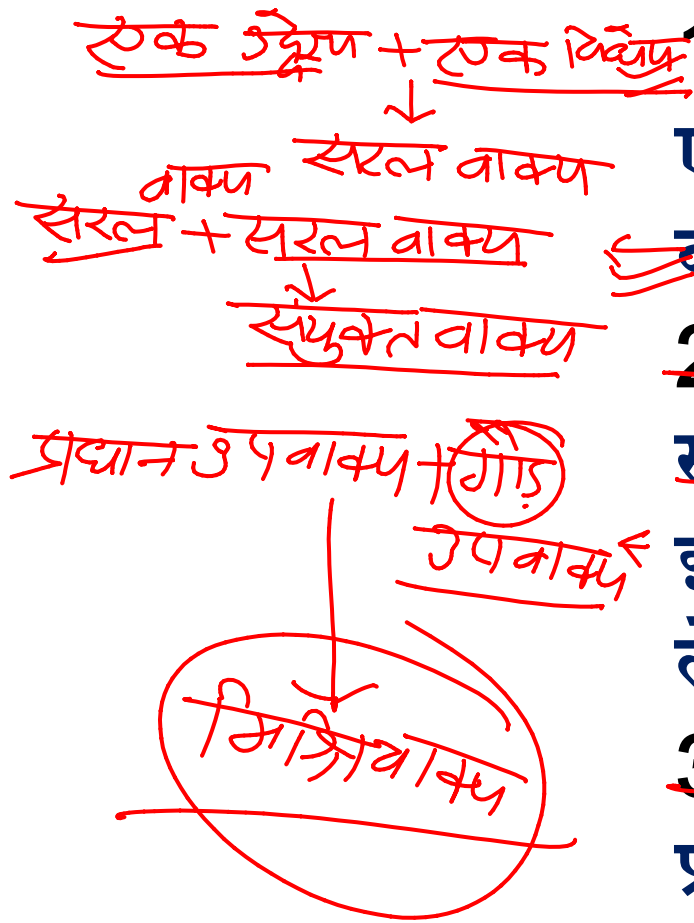 एक उद्देश्य + एक विधेय
सरल वाक्य
वाक्य
सरल + सरल वाक्य
संयुक्त वाक्य
प्रधान उपवाक्य + गौड़
उपवाक्य
मिश्रित वाक्य